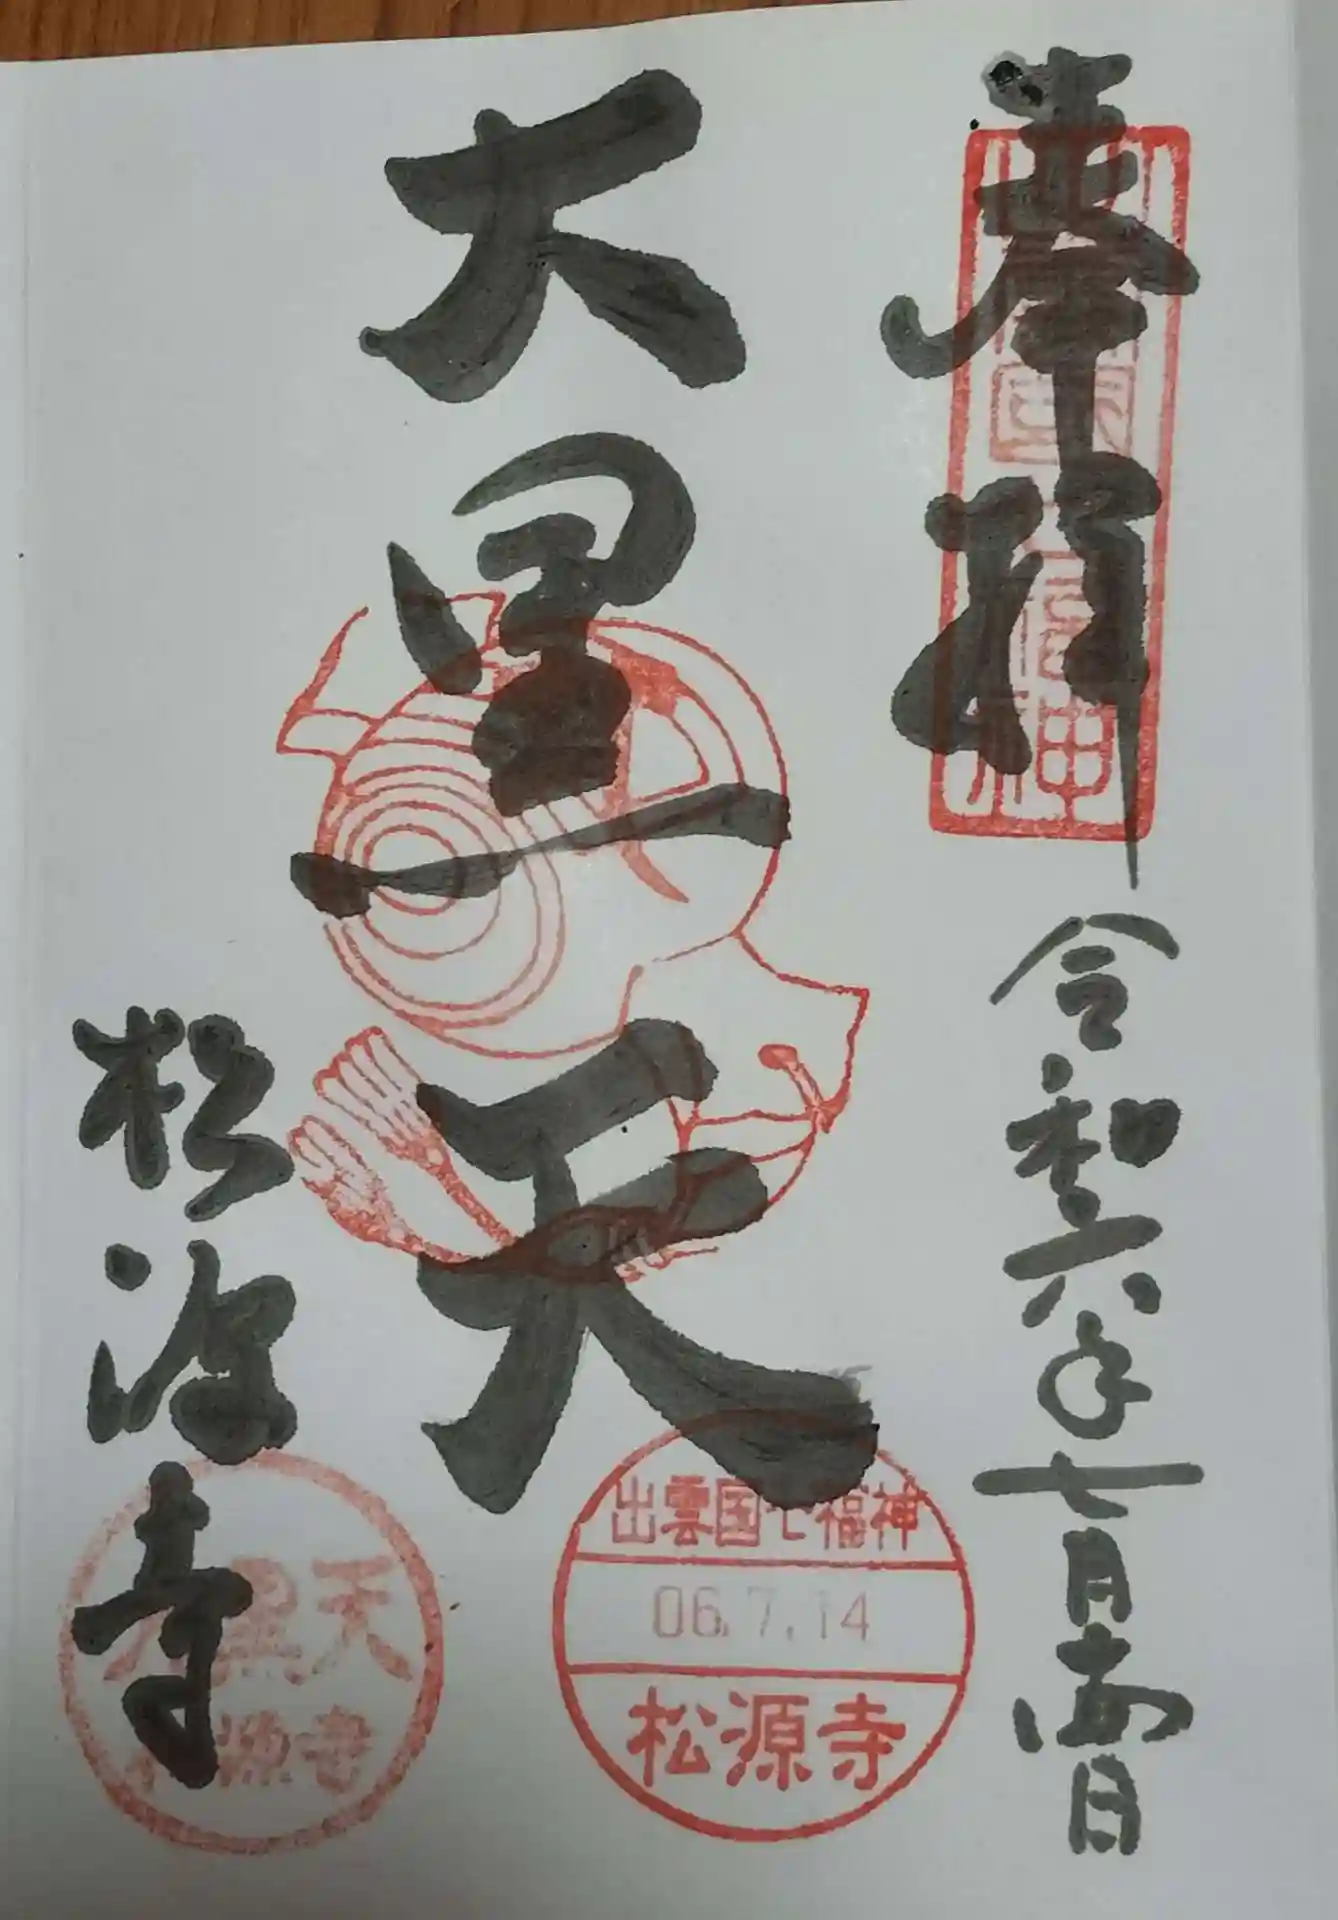 奉拝 令和六年七月十四日
大黒天
松源寺
出雲国七福神
06.7.14
松源寺
大黒天
松源寺